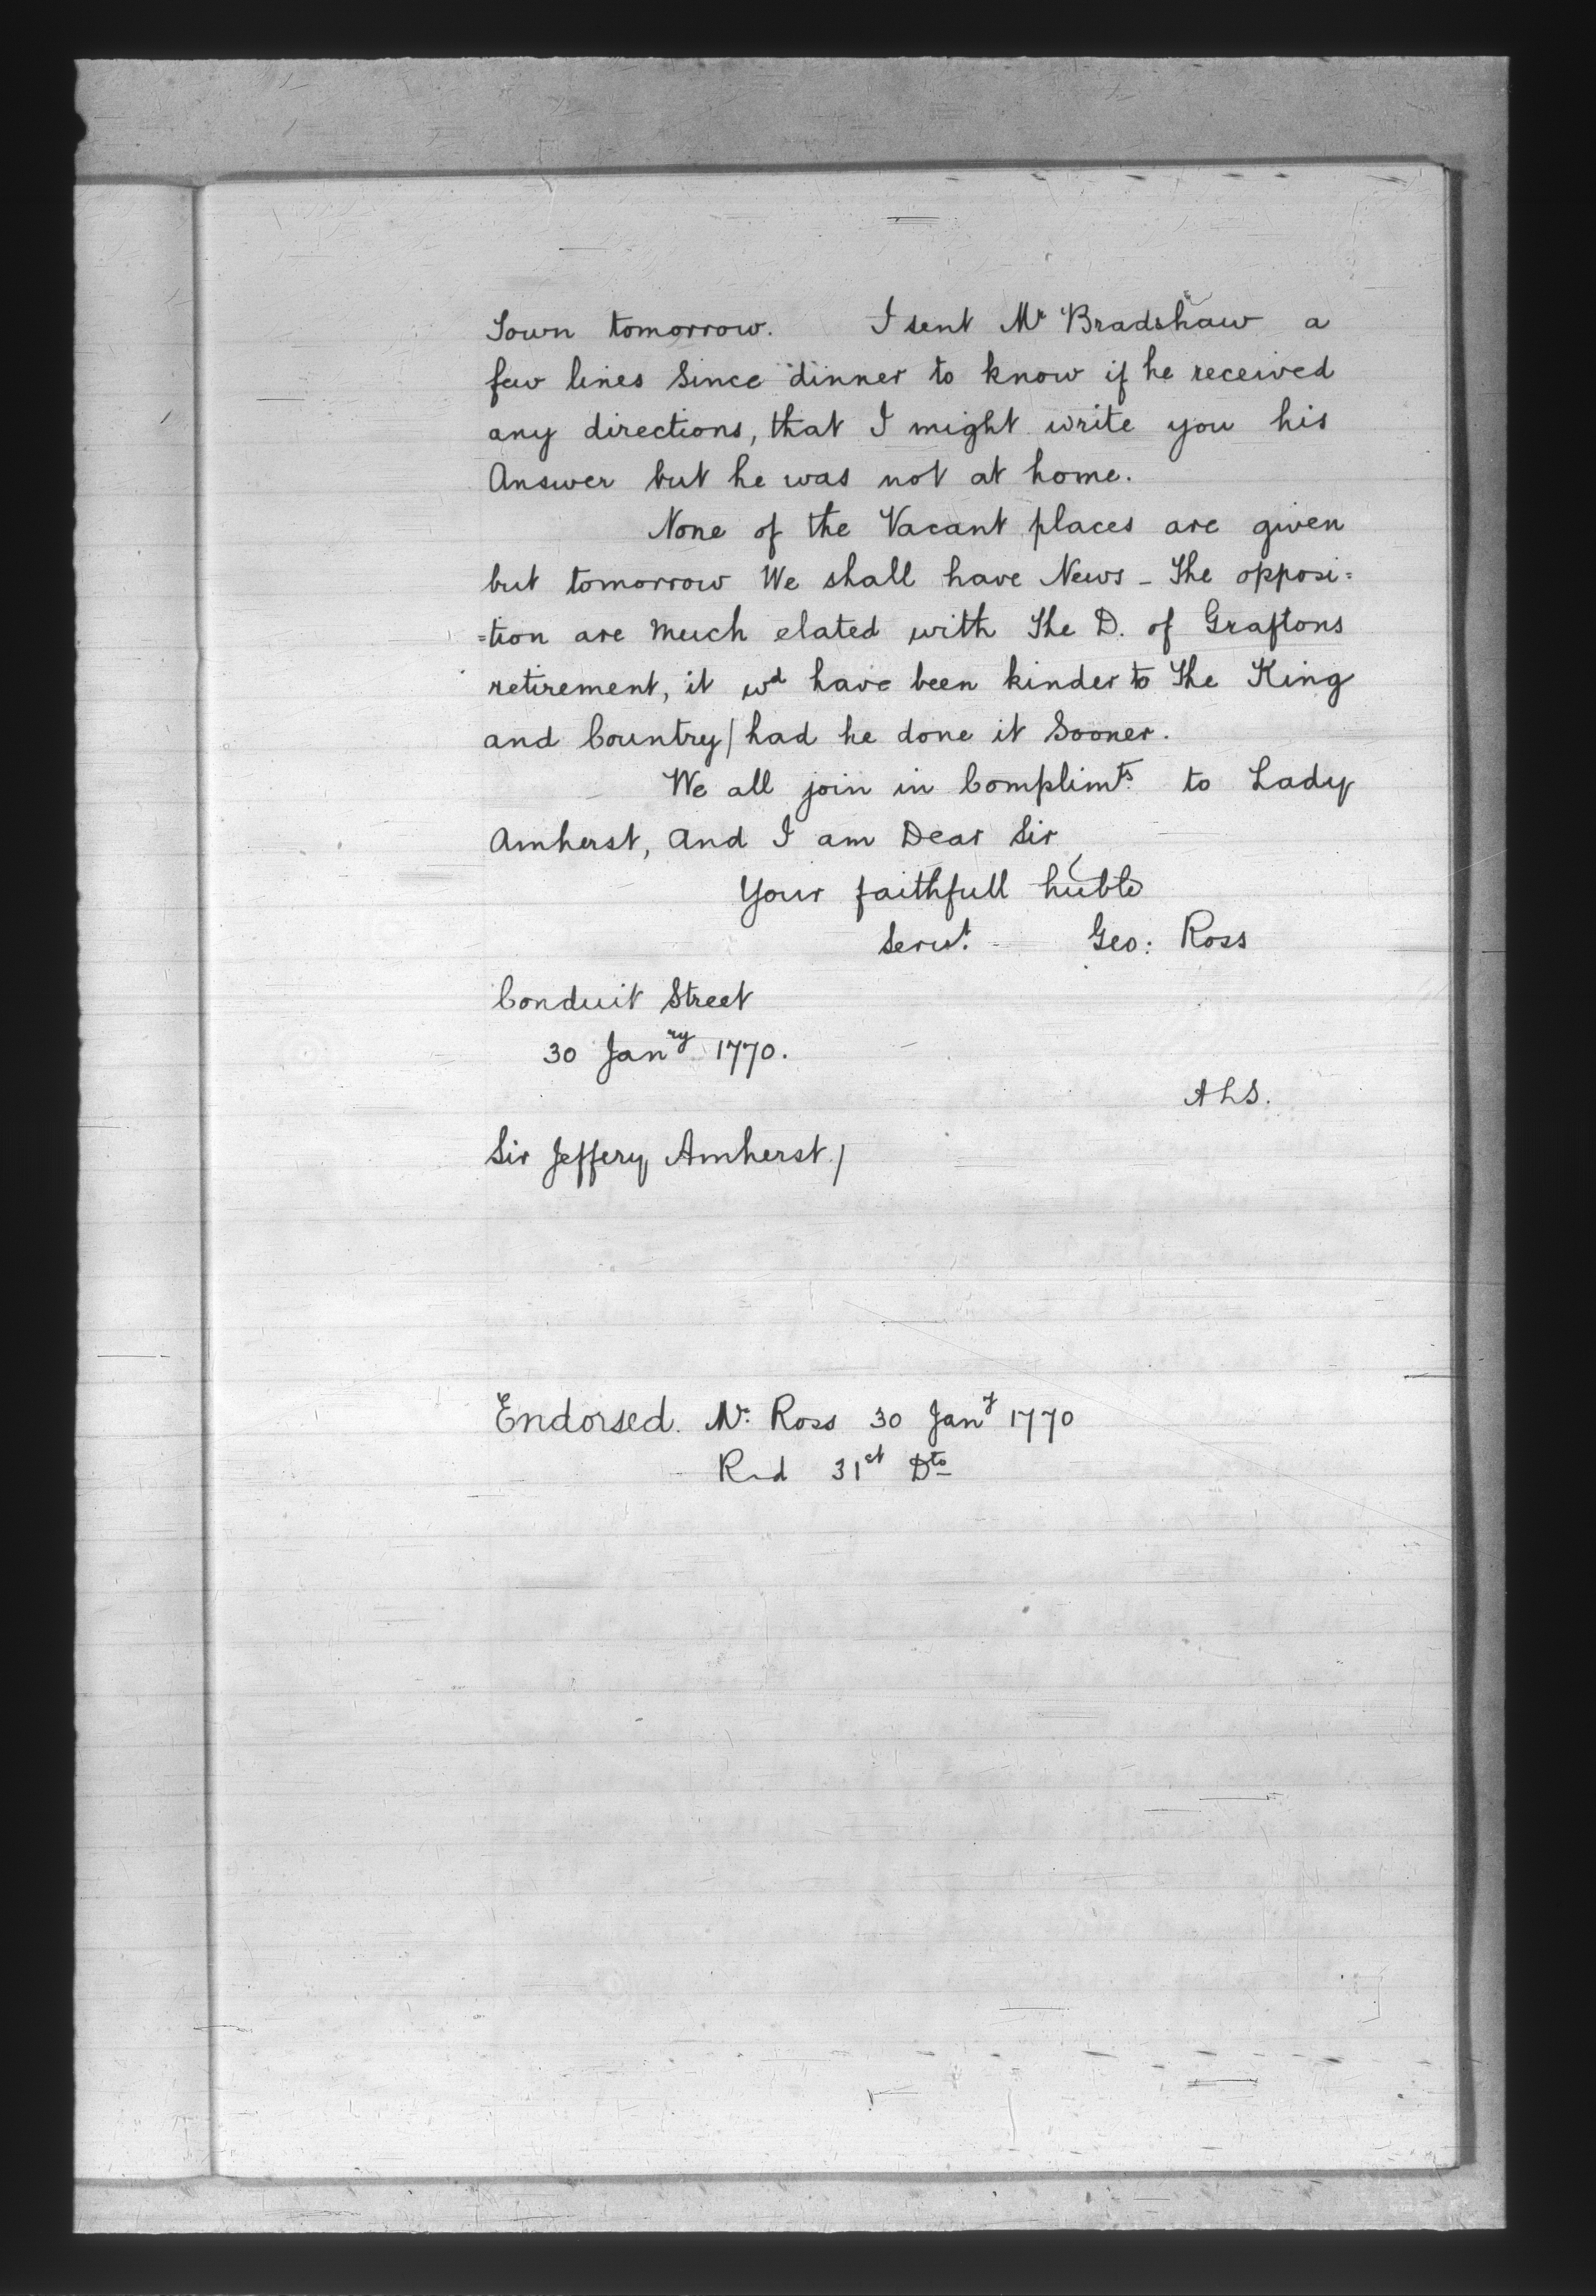 Town tomorrow. I sent Mr Bradshaw a
few lines Since dinner to know if he received
any directions, that I might write you his
Answer but he was not at home.
None of the Vacant places are given
but tomorrow We shall have News - The opposi=
=tion are much elated with The D. of Graftons
retirement, it wd have been kinder to The King
and Country/ had he done it Sooner.
We all join in Complimts. to Lady
Amherst, and I am Dear Sir
Your faithfull huble
Servt. Geo: Ross
Conduit Street
30 Janry 1770.
ALS.
Sir Jeffery Amherst/
Endorsed. Mr. Ross 30 Jany 1770
Rd 31st Dto